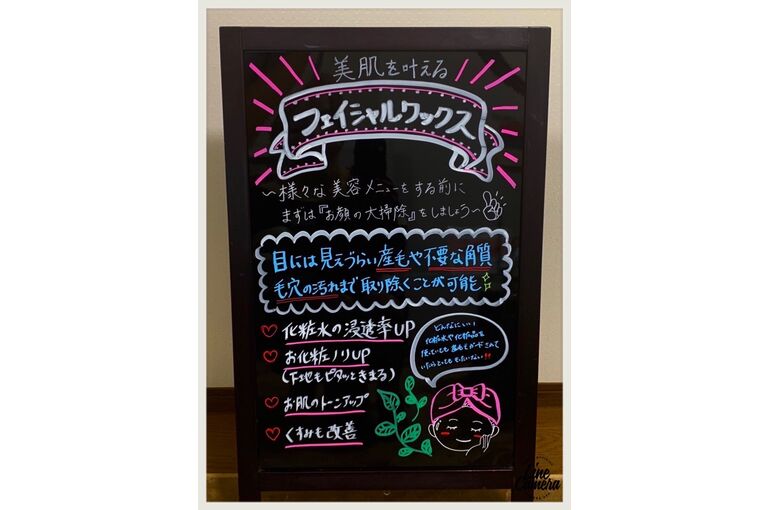 美肌を叶える
フェイシャルワックス
〜様々な美容メニューをする前に
まずは『お顔の大掃除』をしましょう〜
目には見えづらい産毛や不要な角質
毛穴の汚れまで取り除くことが可能
♡ 化粧水の浸透率UP
♡ お化粧ノリUP
(下地もピタッときまる)
♡ お肌のトーンアップ
♡ くすみも改善
どんなにいい
化粧水や化粧品を
使っていても産毛がガードされて
いたらとってももったいない!!
Line
Camera